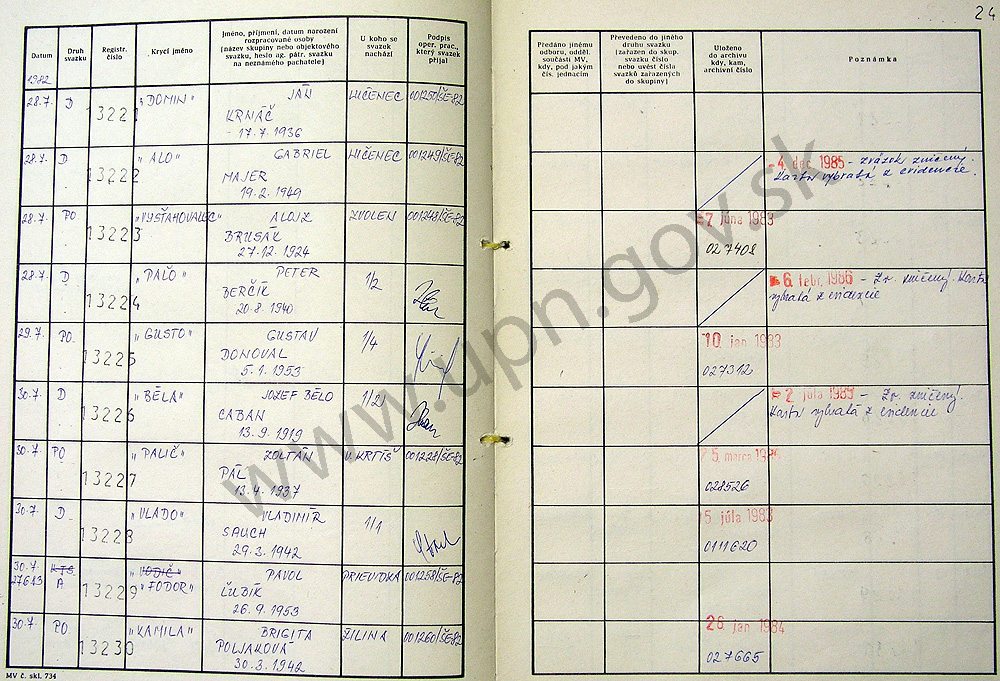 24
Datum
Druh svazku
Registr. číslo
Krycí jméno
Jméno, příjmení, datum narození
rozpracované osoby
[název skupiny nebo objektového
svazku, heslo ag. pátr. svazku
na neznámého pachatele]
U koho se
svazek
nachází
Podpis
oper. prac.,
který svazek
přijal
Předáno jinému
odboru, odděl.
součásti MV,
kdy, pod jakým
čís. jednacím
Převedeno do jiného
druhu svazku
[zařazen do skup.
svazku číslo
nebo uvést čísla
svazků zařazených
do skupiny]
Uloženo
do archivu
kdy, kam,
archivní číslo
Poznámka
1982
28.7. D 13221 "DOMIN" JÁN LUČENEC 001250/ŠE-82
KRNÁČ
17.7.1936
28.7. D 13222 "ALO" GABRIEL LUČENEC 001249/ŠE-82
MAJER
19.2.1949
4. dec 1985 - zväzok zničený.
Karta vybratá z evidencie.
28.7. PO 13223 "VYSŤAHOVALEC" ALOJZ ZVOLEN 001248/ŠE-82
BRUSÁK
27.12.1924
7 júna 1983
027408
28.7. D 13224 "PAĽO" PETER 1/2
BERČÍK
20.8.1940
6. febr. 1986 - Zv. zničený. Karta
vybratá z evidencie
29.7. PO 13225 "GUSTO" GUSTAV 1/4
DONOVAL
5.1.1953
10 jan 1983
027312
30.7. D 13226 "BÉLA" JOZEF BÉLO 1/2
CABAN
13.9.1919
2 júla 1985 - Zv. zničený.
Karta vybratá z evidencie
30.7. PO 13227 "PALIČ" ZOLTÁN V. KRTÍŠ 001228/ŠE-82
PÁL
13.4.1937
5. marca
028526
30.7. D 13228 "VLADO" VLADIMÍR 1/1
SAUCH
29.3.1942
5 júla 1983
0111620
30.7. KTS 13229 "VODIČ" PAVOL PRIEVIDZA 001258/ŠE-82
27613 A "FODOR" ĽUBÍK
26.9.1953
30.7 PO 13230 "KAMILA" BRIGITA ŽILINA 001260/ŠE-82
POLJAKOVÁ
30.3.1942
26 jan 1984
027665
MV č. skl. 734
www.upn.gov.sk